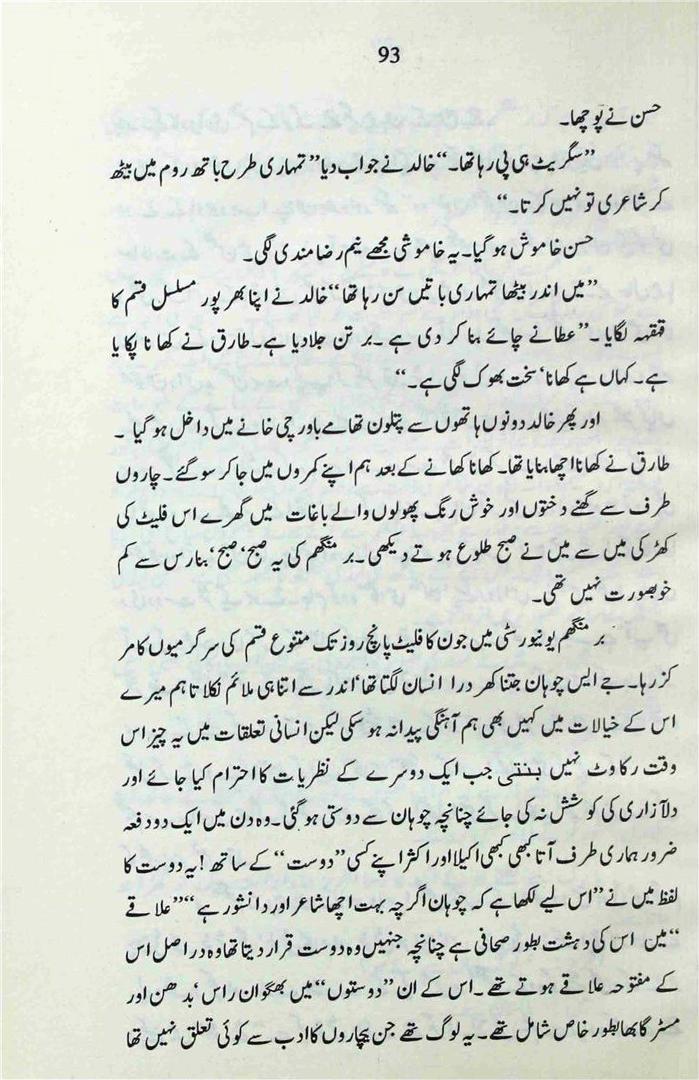 93
حسن نے پوچھا۔
”سگریٹ ہی پی رہا تھا۔“ خالد نے جواب دیا ”تمہاری طرح باتھ روم میں بیٹھ
کر شاعری تو نہیں کرتا۔“
حسن خاموش ہو گیا۔ یہ خاموشی مجھے نیم رضامندی لگی۔
”میں اندر بیٹھا تمہاری باتیں سن رہا تھا“ خالد نے اپنا بھرپور مسلسل قسم کا
قہقہہ لگایا ۔ ”عطا نے چائے بنا کر دی ہے ۔ برتن جلا دیا ہے۔ طارق نے کھانا پکایا
ہے۔ کہاں ہے کھانا‘ سخت بھوک لگی ہے۔“
اور پھر خالد دونوں ہاتھوں سے پتلون تھامے باورچی خانے میں داخل ہو گیا ۔
طارق نے کھانا اچھا بنایا تھا۔ کھانا کھانے کے بعد ہم اپنے کمروں میں جا کر سو گئے۔ چاروں
طرف سے گھنے دختوں اور خوش رنگ پھولوں والے باغات میں گھرے اس فلیٹ کی
کھڑکی میں سے میں نے صبح طلوع ہوتے دیکھی۔ برمنگھم کی یہ صبح‘ صبح‘ بنارس سے کم
خوبصورت نہیں تھی۔
برمنگھم یونیورسٹی میں جون کا فلیٹ پانچ روز تک متنوع قسم کی سرگرمیوں کا مر
کز رہا۔ جے ایس چوہان جتنا کھردرا انسان لگتا تھا‘ اندر سے اتنا ہی ملائم نکلا تاہم میرے
اس کے خیالات میں کہیں بھی ہم آہنگی پیدا نہ ہو سکی لیکن انسانی تعلقات میں یہ چیز اس
وقت رکاوٹ نہیں بنتی جب ایک دوسرے کے نظریات کا احترام کیا جائے اور
دلآزاری کی کوشش نہ کی جائے چنانچہ چوہان سے دوستی ہو گئی۔ وہ دن میں ایک دو دفعہ
ضرور ہماری طرف آتا کبھی کبھی اکیلا اور اکثر اپنے کسی ”دوست“ کے ساتھ ! یہ دوست کا
لفظ میں نے ”اس لیے لکھا ہے کہ چوہان اگرچہ بہت اچھا شاعر اور دانشور ہے“ ”علاقے
“میں اس کی دہشت بطور صحافی ہے چنانچہ جنہیں وہ دوست قرار دیتا تھا وہ دراصل اس
کے مفتوحہ علاقے ہوتے تھے ۔ اس کے ان ”دوستوں“ میں بھگوان راس‘ بدھن اور
مسٹر گابھا بطور خاص شامل تھے۔ یہ لوگ تھے جن بیچاروں کا ادب سے کوئی تعلق نہیں تھا